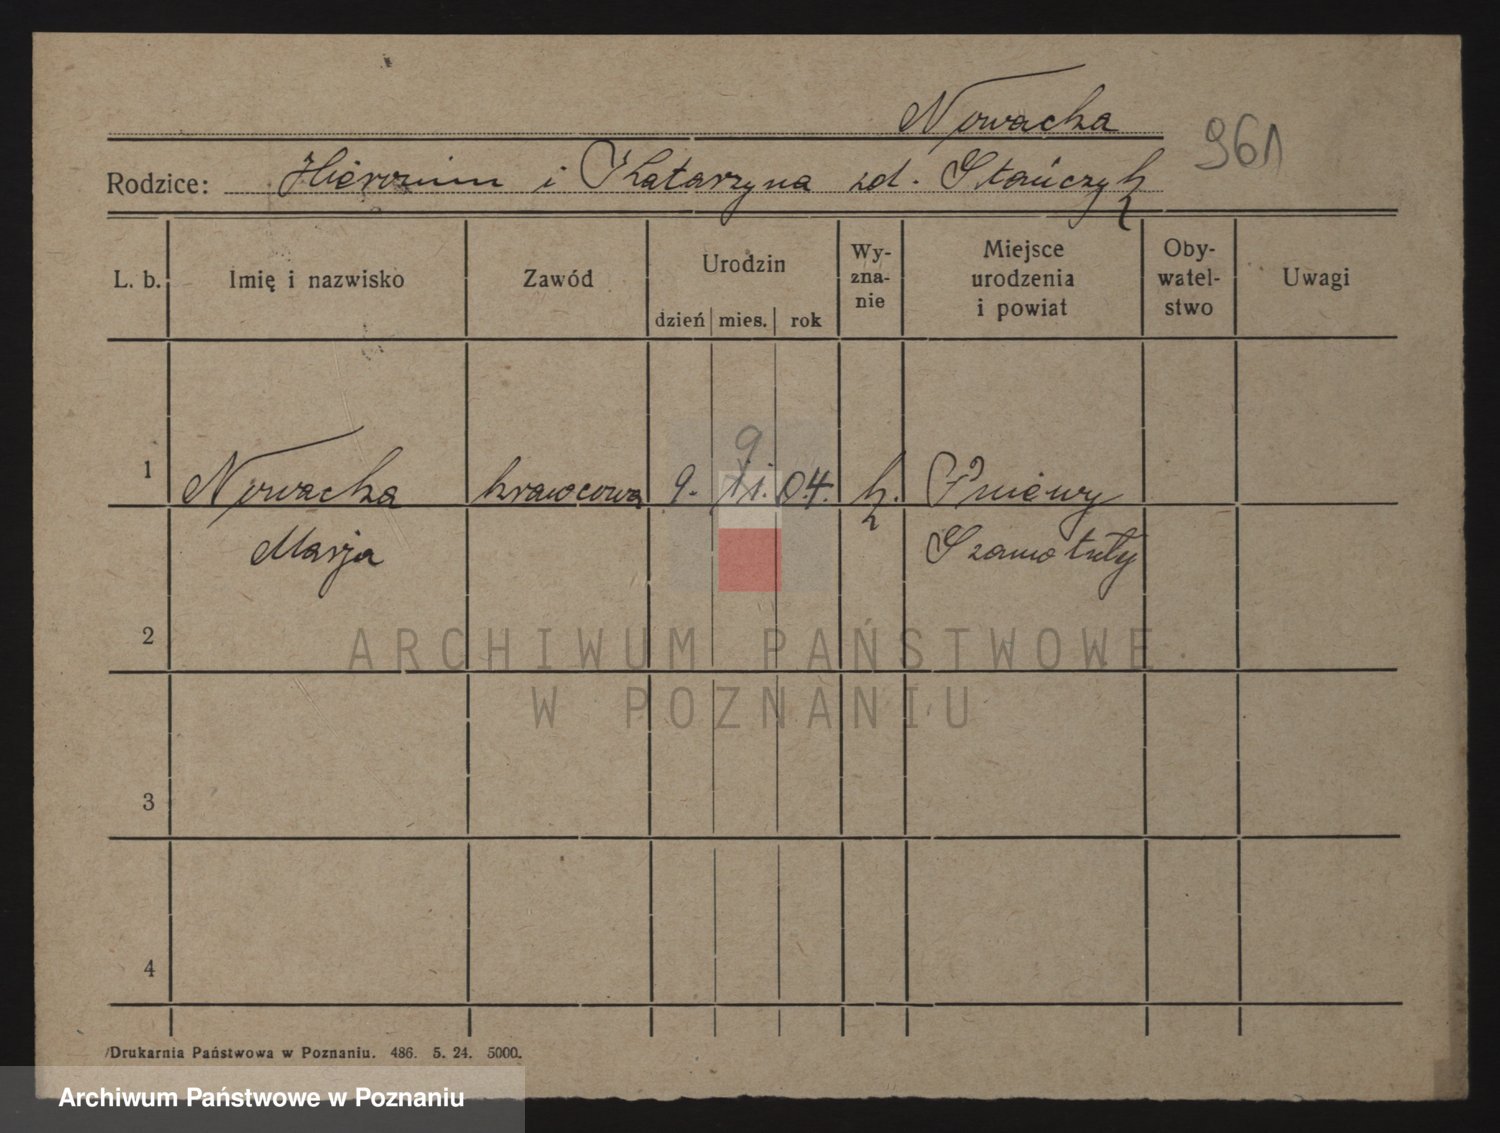 Nowacka
961
Rodzice: Hieronim i Katarzyna zd. Stańczyk
L. b.
Imię i nazwisko
Zawód
Urodzin
dzień mies. rok
Wy-
zna-
nie
Miejsce
urodzenia
i powiat
Oby-
watel-
stwo
Uwagi
9
1 Nowacka krawcowa 9. 04. k. Pniewy
Marja Szamotuły
2
3
4
ARCHIWUM PAŃSTWOWE
W POZNANIU
Drukarnia Państwowa w Poznaniu. 486. 5. 24. 5000.
Archiwum Państwowe w Poznaniu